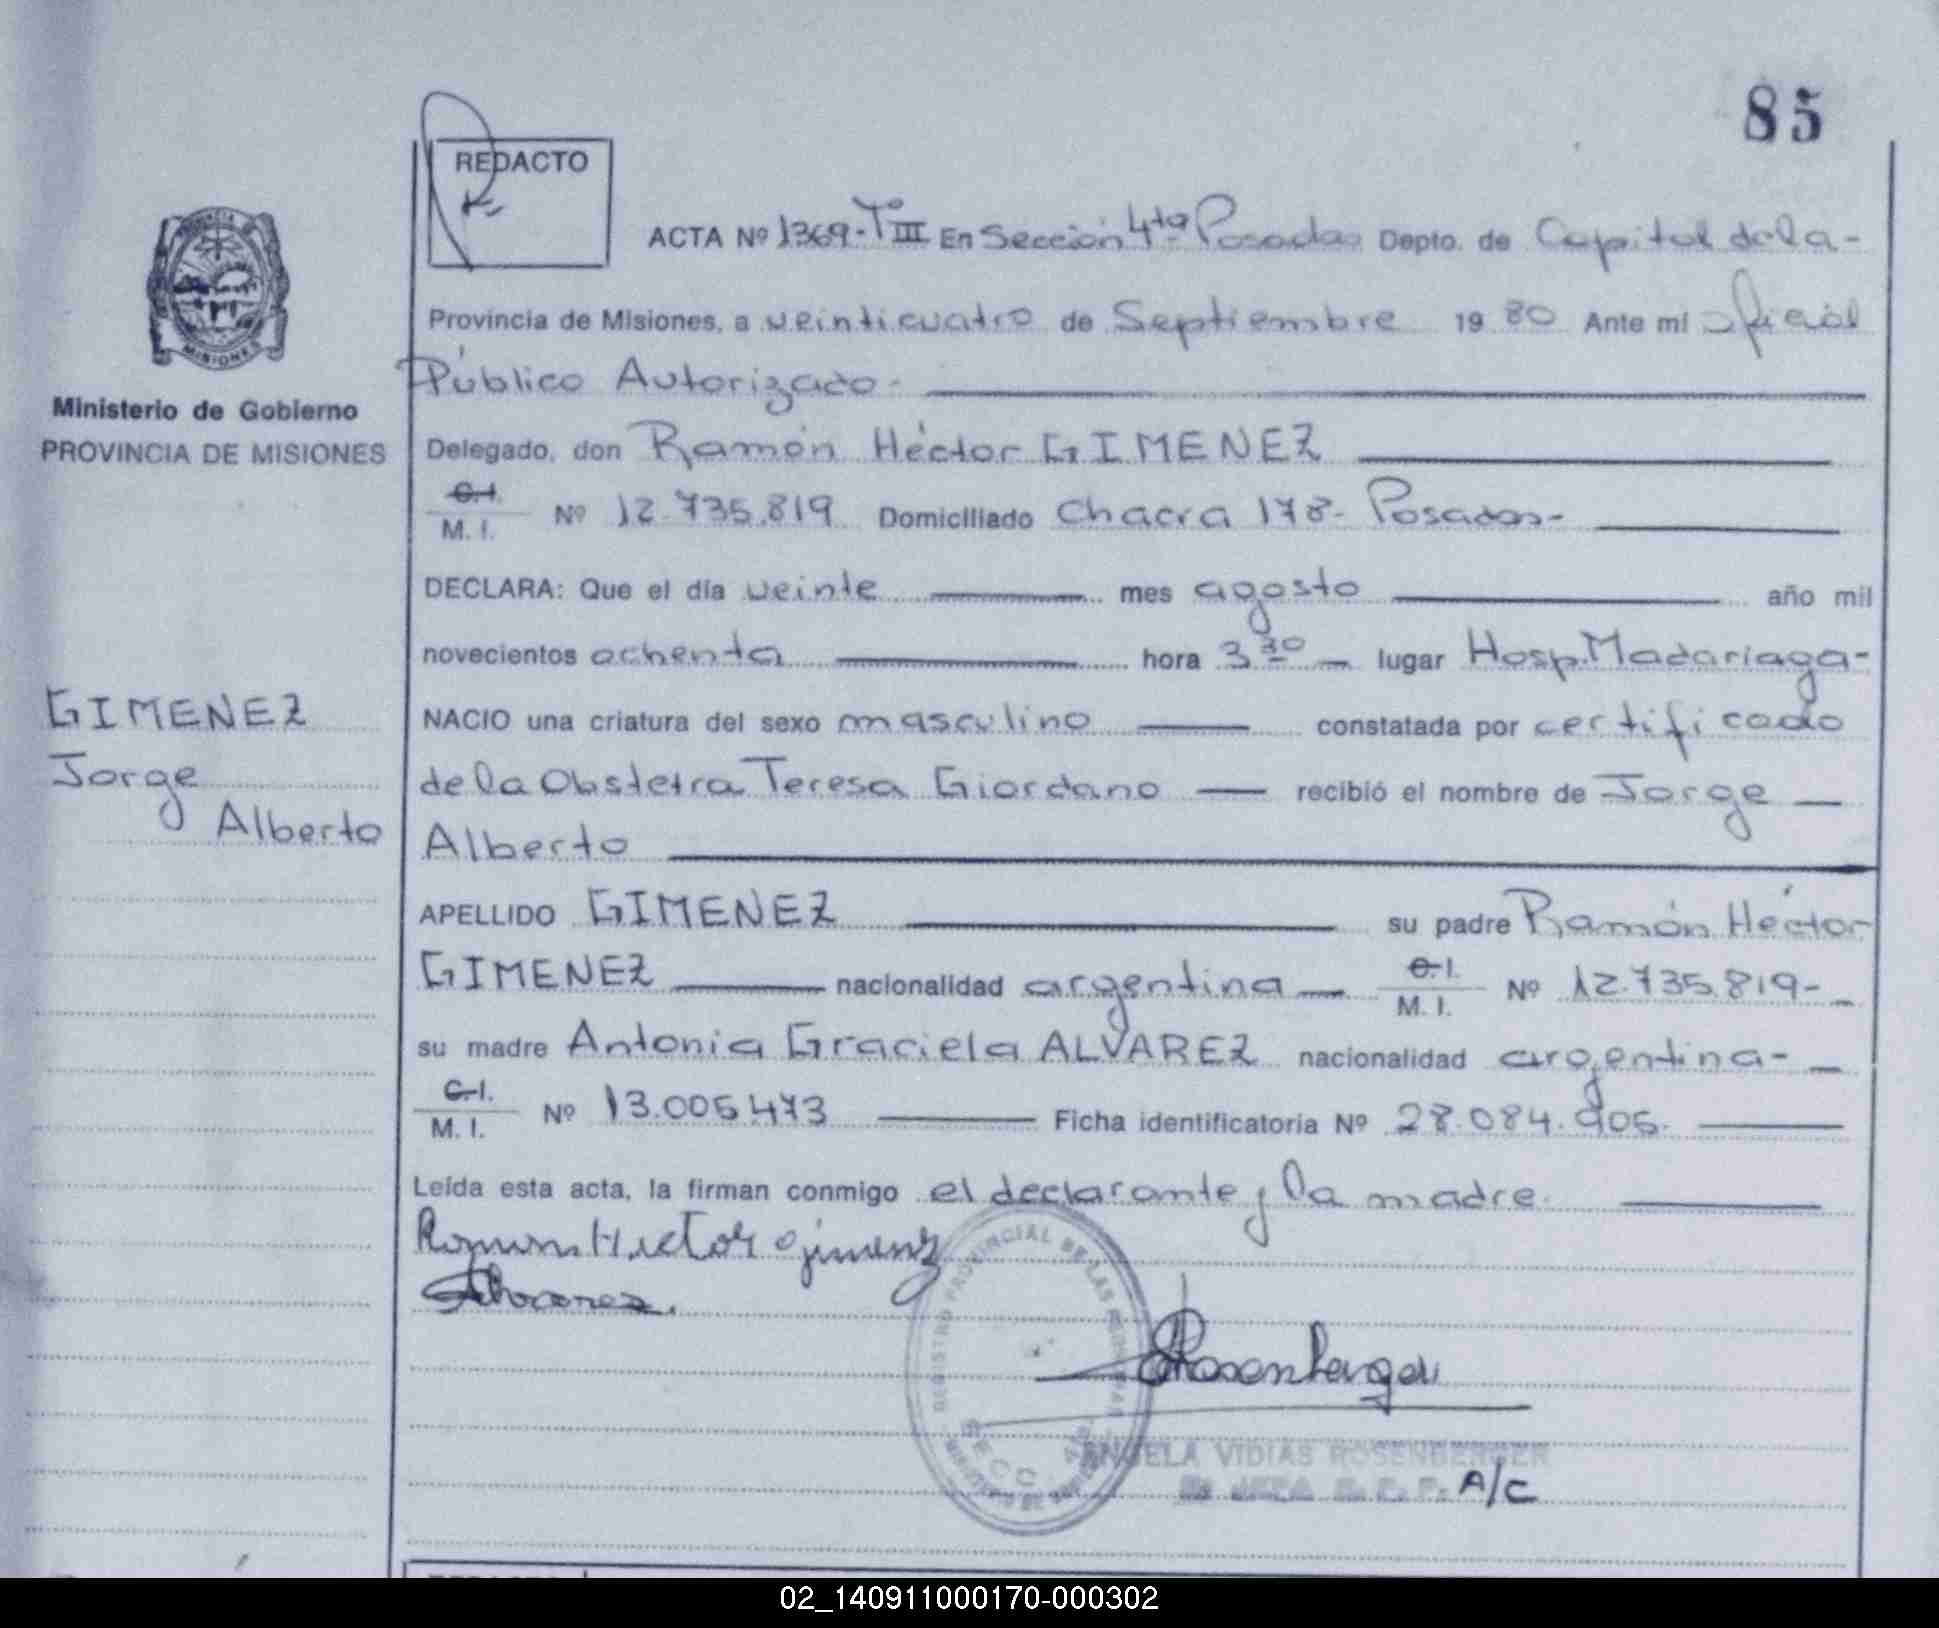 85
REDACTO
ACTA Nº 1369-Tº III En Sección 4ta Posadas Depto. de Capital de la-
Provincia de Misiones, a veinticuatro de Septiembre 19 80 Ante mi Oficial
Público Autorizado-
Delegado, don Ramón Héctor GIMENEZ
C.I.
M. I. Nº 12.735.819 Domiciliado Chacra 178- Posadas-
DECLARA: Que el día veinte mes agosto año mil
novecientos ochenta hora 3 30 lugar Hosp. Madariaga-
NACIO una criatura del sexo masculino constatada por certificado
de la Obstetra Teresa Giordano recibió el nombre de Jorge
Alberto
APELLIDO GIMENEZ su padre Ramón Héctor
GIMENEZ nacionalidad argentina C.I.
M. I. Nº 12.735.819-
su madre Antonia Graciela ALVAREZ nacionalidad argentina-
C.I.
M. I. Nº 13.005.473 Ficha identificatoria Nº 28.084.905.
Leída esta acta, la firman conmigo el declarante y la madre.
Ramon Hector gimenez
Alvarez.
Rosenberger
REGISTRO PROVINCIAL DE LAS PERSONAS
SECC
ANGELA VIDIAS ROSENBERGER
JEFA A/C
PROVINCIA
MISIONES
Ministerio de Gobierno
PROVINCIA DE MISIONES
GIMENEZ
Jorge
Alberto
02_140911000170-000302